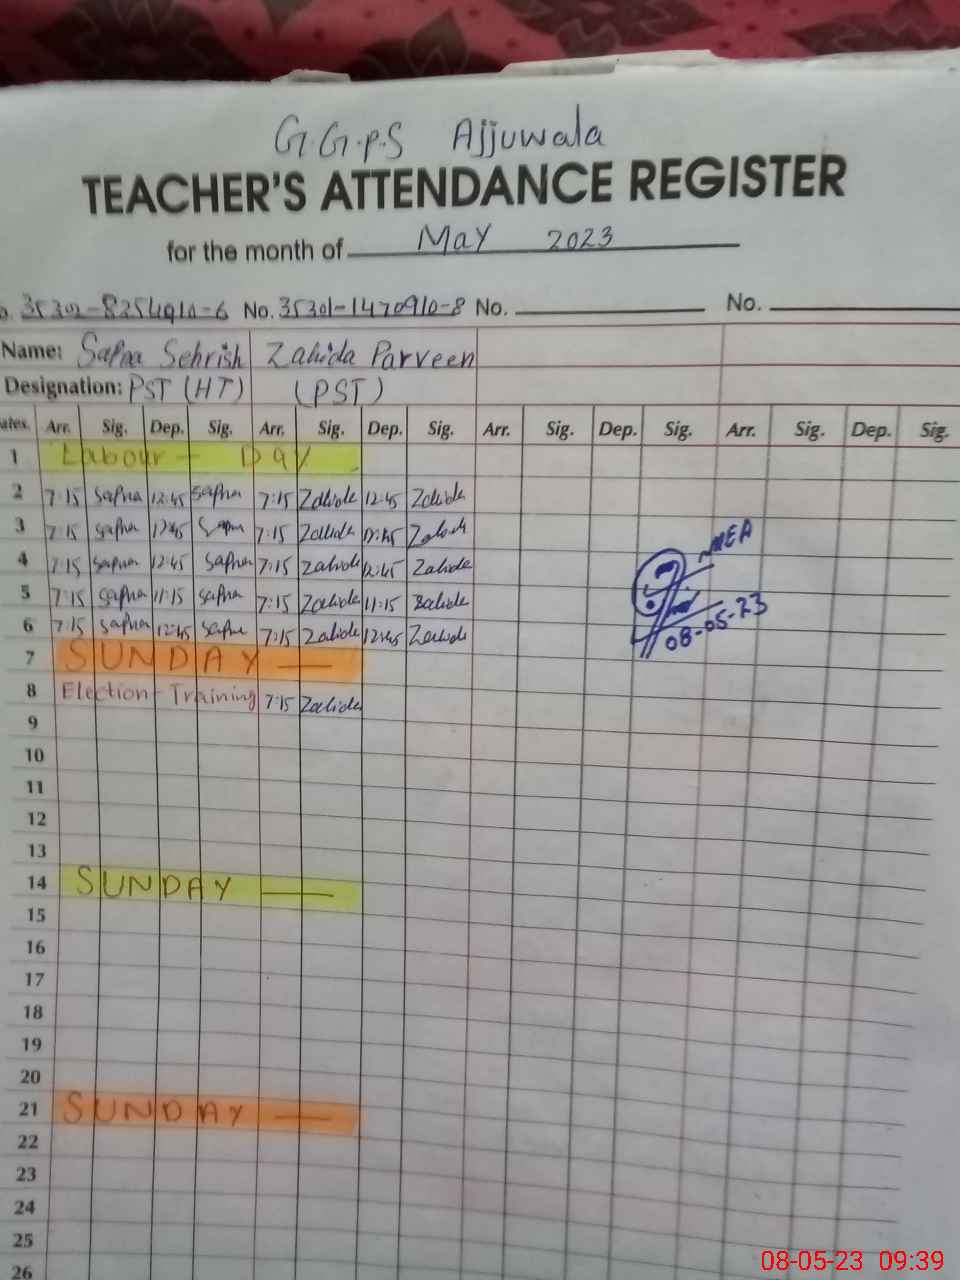 G.G.P.S Ajjuwala
TEACHER'S ATTENDANCE REGISTER
for the month of May 2023
o. 35302-8254910-6 No. 35301-1470910-8 No. No.
Name: Sapna Sehrish Zahida Parveen
Designation: PST (HT) (PST)
ates. Arr. Sig. Dep. Sig. Arr. Sig. Dep. Sig. Arr. Sig. Dep. Sig. Arr. Sig. Dep. Sig.
1 Labour - Day
2 7:15 Sapna 12:45 Sapna 7:15 Zahida 12:45 Zahida
3 7:15 Sapna 12:45 Sapna 7:15 Zahida 12:45 Zahida
4 7:15 Sapna 12:45 Sapna 7:15 Zahida 12:45 Zahida
5 7:15 Sapna 11:15 Sapna 7:15 Zahida 11:15 Zahida
6 7:15 Sapna 12:45 Sapna 7:15 Zahida 12:45 Zahida
MEA
08-05-23
7 SUNDAY —
8 Election - Training 7:15 Zahida
9
10
11
12
13
14 SUNDAY —
15
16
17
18
19
20
21 SUNDAY —
22
23
24
25
26
08-05-23 09:39